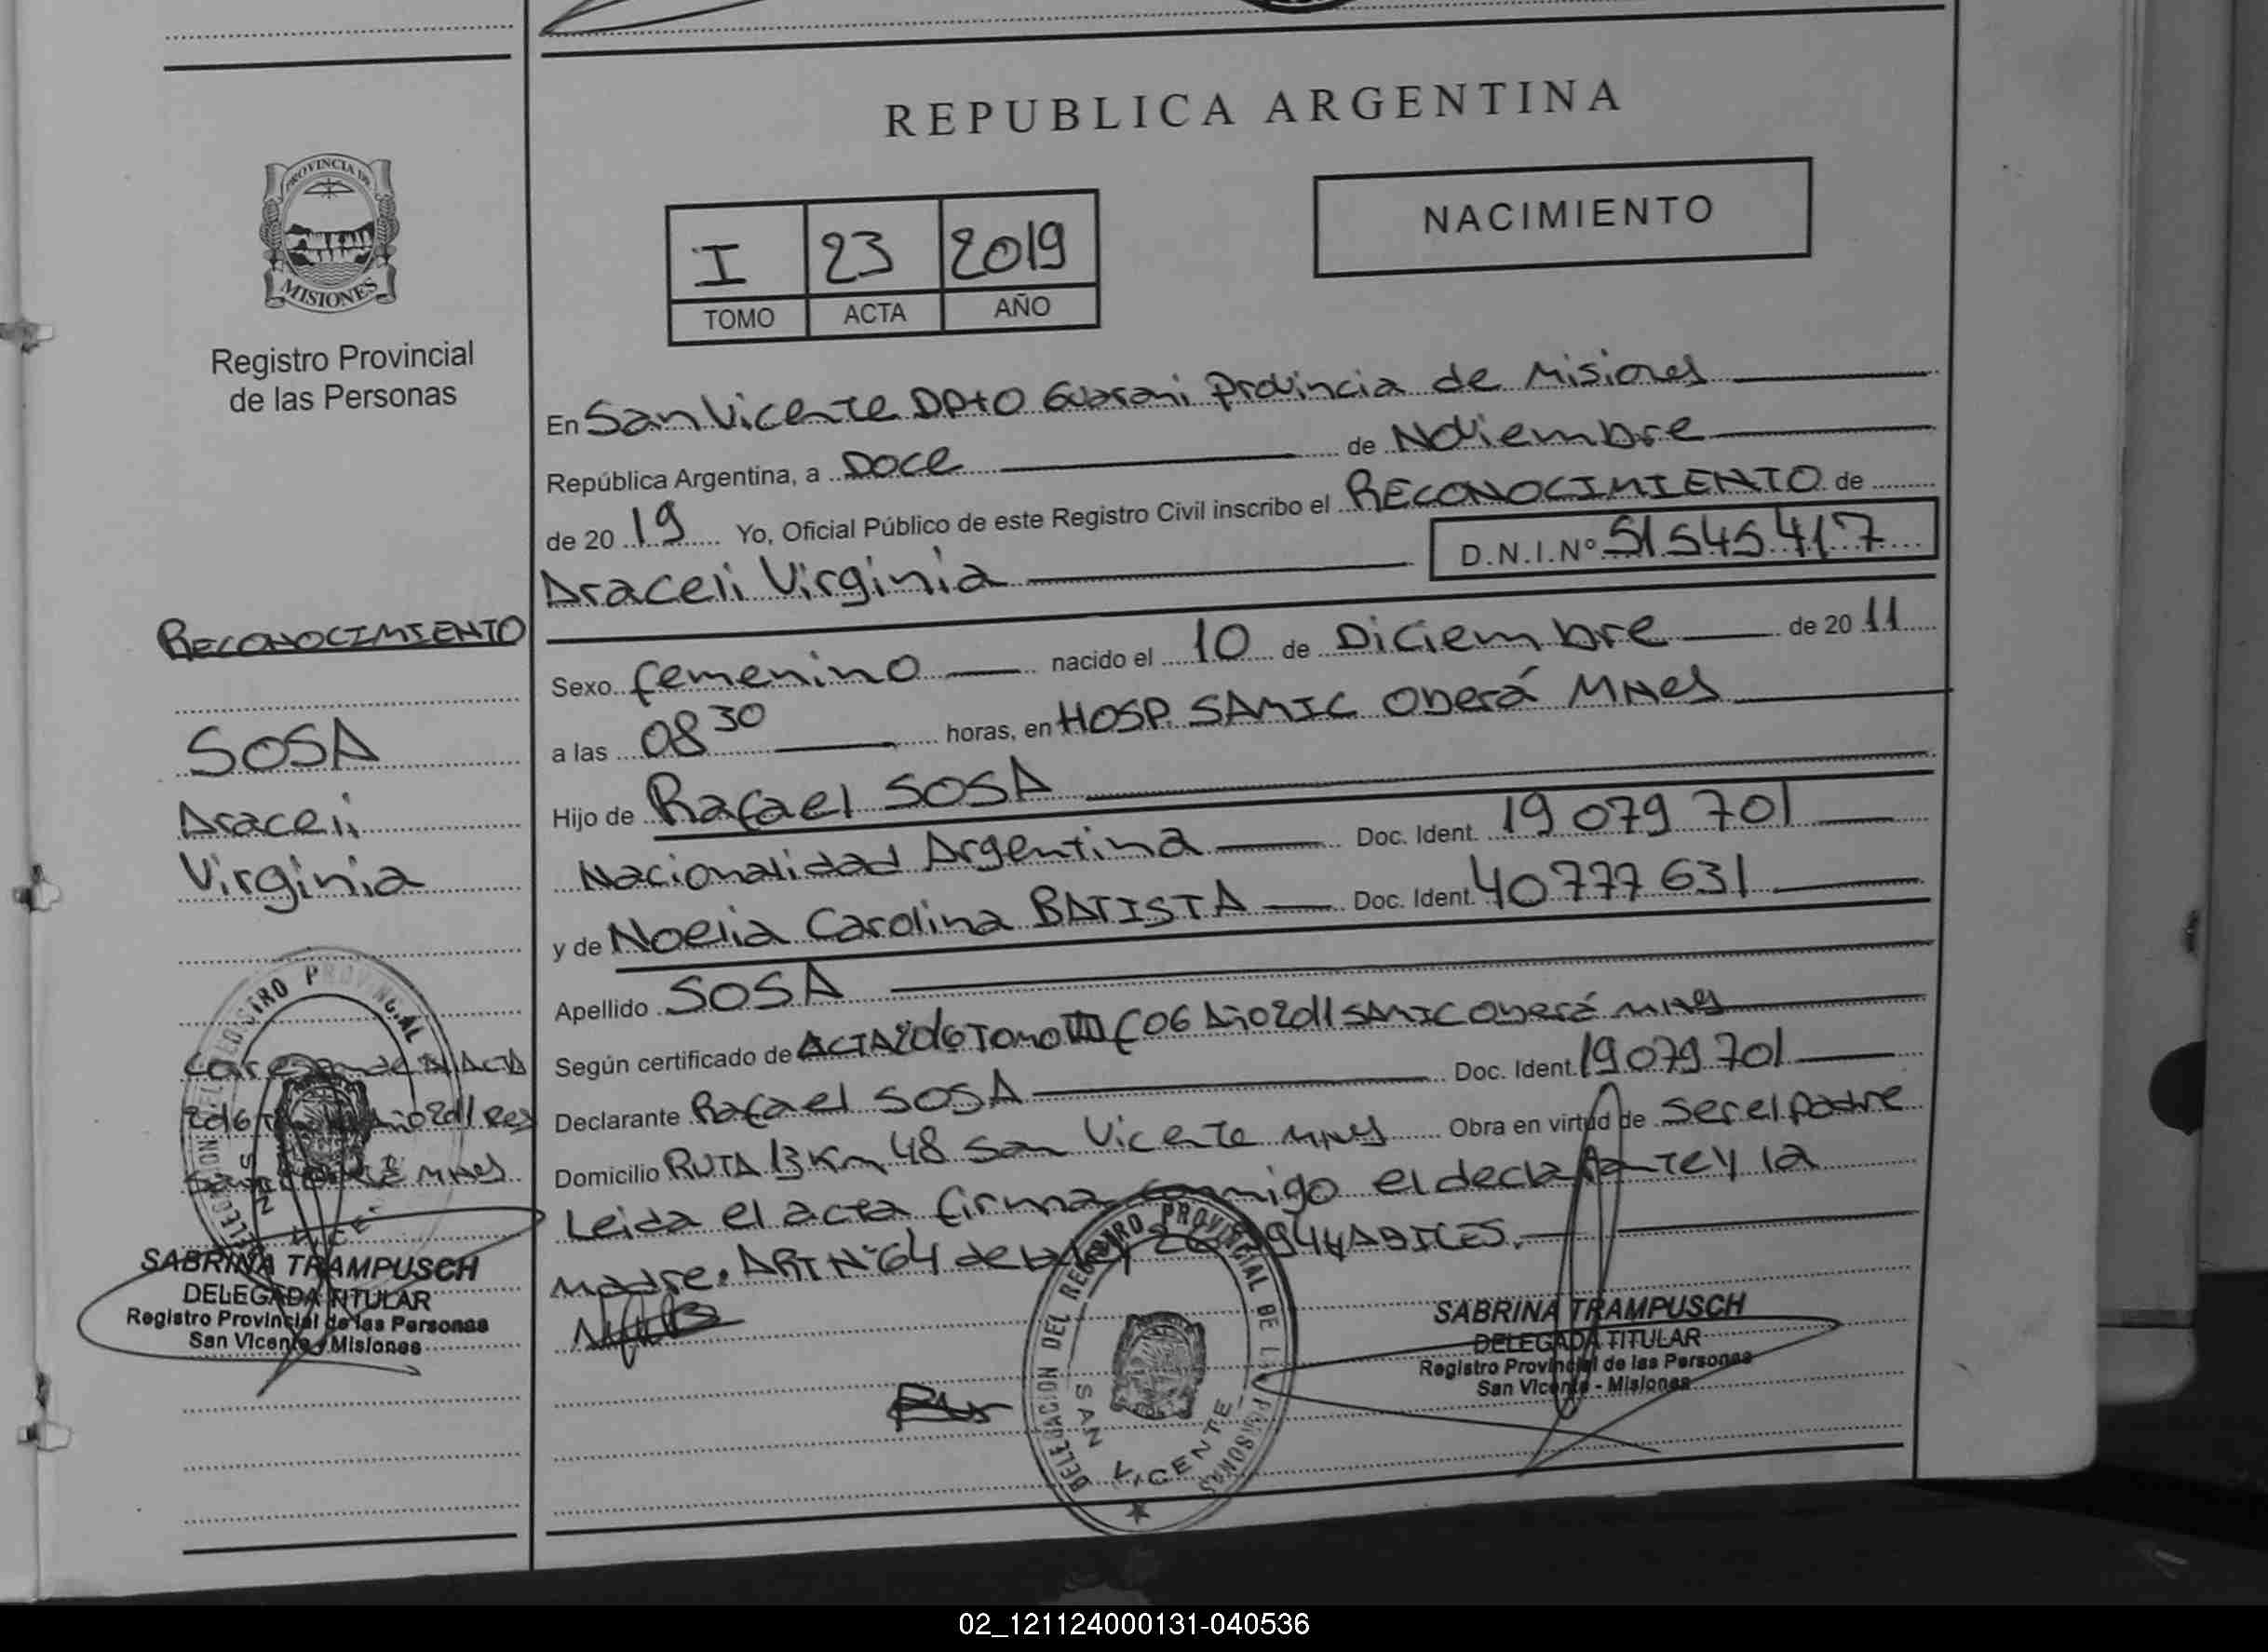 REPUBLICA ARGENTINA
PROVINCIA DE
MISIONES
Registro Provincial
de las Personas
NACIMIENTO
I 23 2019
TOMO ACTA AÑO
En San Vicente Dpto Guarani Provincia de Misiones
República Argentina, a Doce de Noviembre
de 20 19 Yo, Oficial Público de este Registro Civil inscribo el RECONOCIMIENTO de
Araceli Virginia D.N.I.Nº 51 545 417
Sexo femenino nacido el 10 de Diciembre de 20 11
a las 08 30 horas, en HOSP. SAMIC Oberá MNes
Hijo de Rafael SOSA
Nacionalidad Argentina Doc. Ident. 19 079 701
y de Noelia Carolina BATISTA Doc. Ident. 40777 631
Apellido SOSA
Según certificado de ACTA 2016 Tomo Año 2011 SAMIC Oberá MNes
Declarante Rafael SOSA Doc. Ident. 19 079 701
Domicilio RUTA 13 Km 48 San Vicente MNes Obra en virtud de ser el padre
Leida el acta firma conmigo el declarante y la
madre. ART Nº 64 de la ley
RECONOCIMIENTO
SOSA
Araceli
Virginia
ACTA
2016 Año 2011
MNes
SABRINA TRAMPUSCH
DELEGADA TITULAR
Registro Provincial de las Personas
San Vicente - Misiones
DELEGACION DEL REGISTRO PROVINCIAL DE LAS PERSONAS
SAN VICENTE
SABRINA TRAMPUSCH
DELEGADA TITULAR
Registro Provincial de las Personas
San Vicente - Misiones
02_121124000131-040536